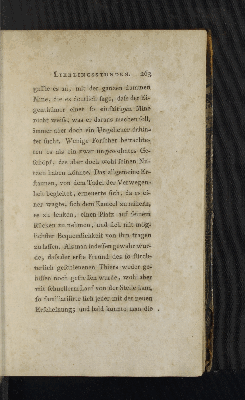 LIEBLINGSSTUNDEN. 263
gaffte es an, mit der ganzen dummen
Mine, die es deutlich sagt, daſs der Ei-
genthümer einer so einfältigen Mine
nicht weiſs, was er daraus machen soll,
immer aber doch ein Ungeheuer dahin-
ter sucht. Wenige Forscher betrachte-
ten es als ein zwar ungewohntes Ge-
schöpf, das aber doch wohl seinen Nu-
tzen haben könnte. Das allgemeine Er-
staunen, von dem Tadel der Verwegen-
heit begleitet, erneuerte sich, da es ei-
ner wagte, sich dem Kameel zu nähern,
es zu lenken, einen Platz auf seinem
Rücken zu nehmen, und sich mit mög-
lichster Bequemlichkeit von ihm tragen
zu lassen. Als man indessen gewahr wur-
de, daſs der erste Freund des so fürch-
terlich geschienenen Thiers weder ge-
bissen noch gefressen wurde, wohl aber
mit schnellerm Lauf von der Stelle kam,
so familiarisirte sich jeder mit der neuen
Erscheinung; und bald konnte man die